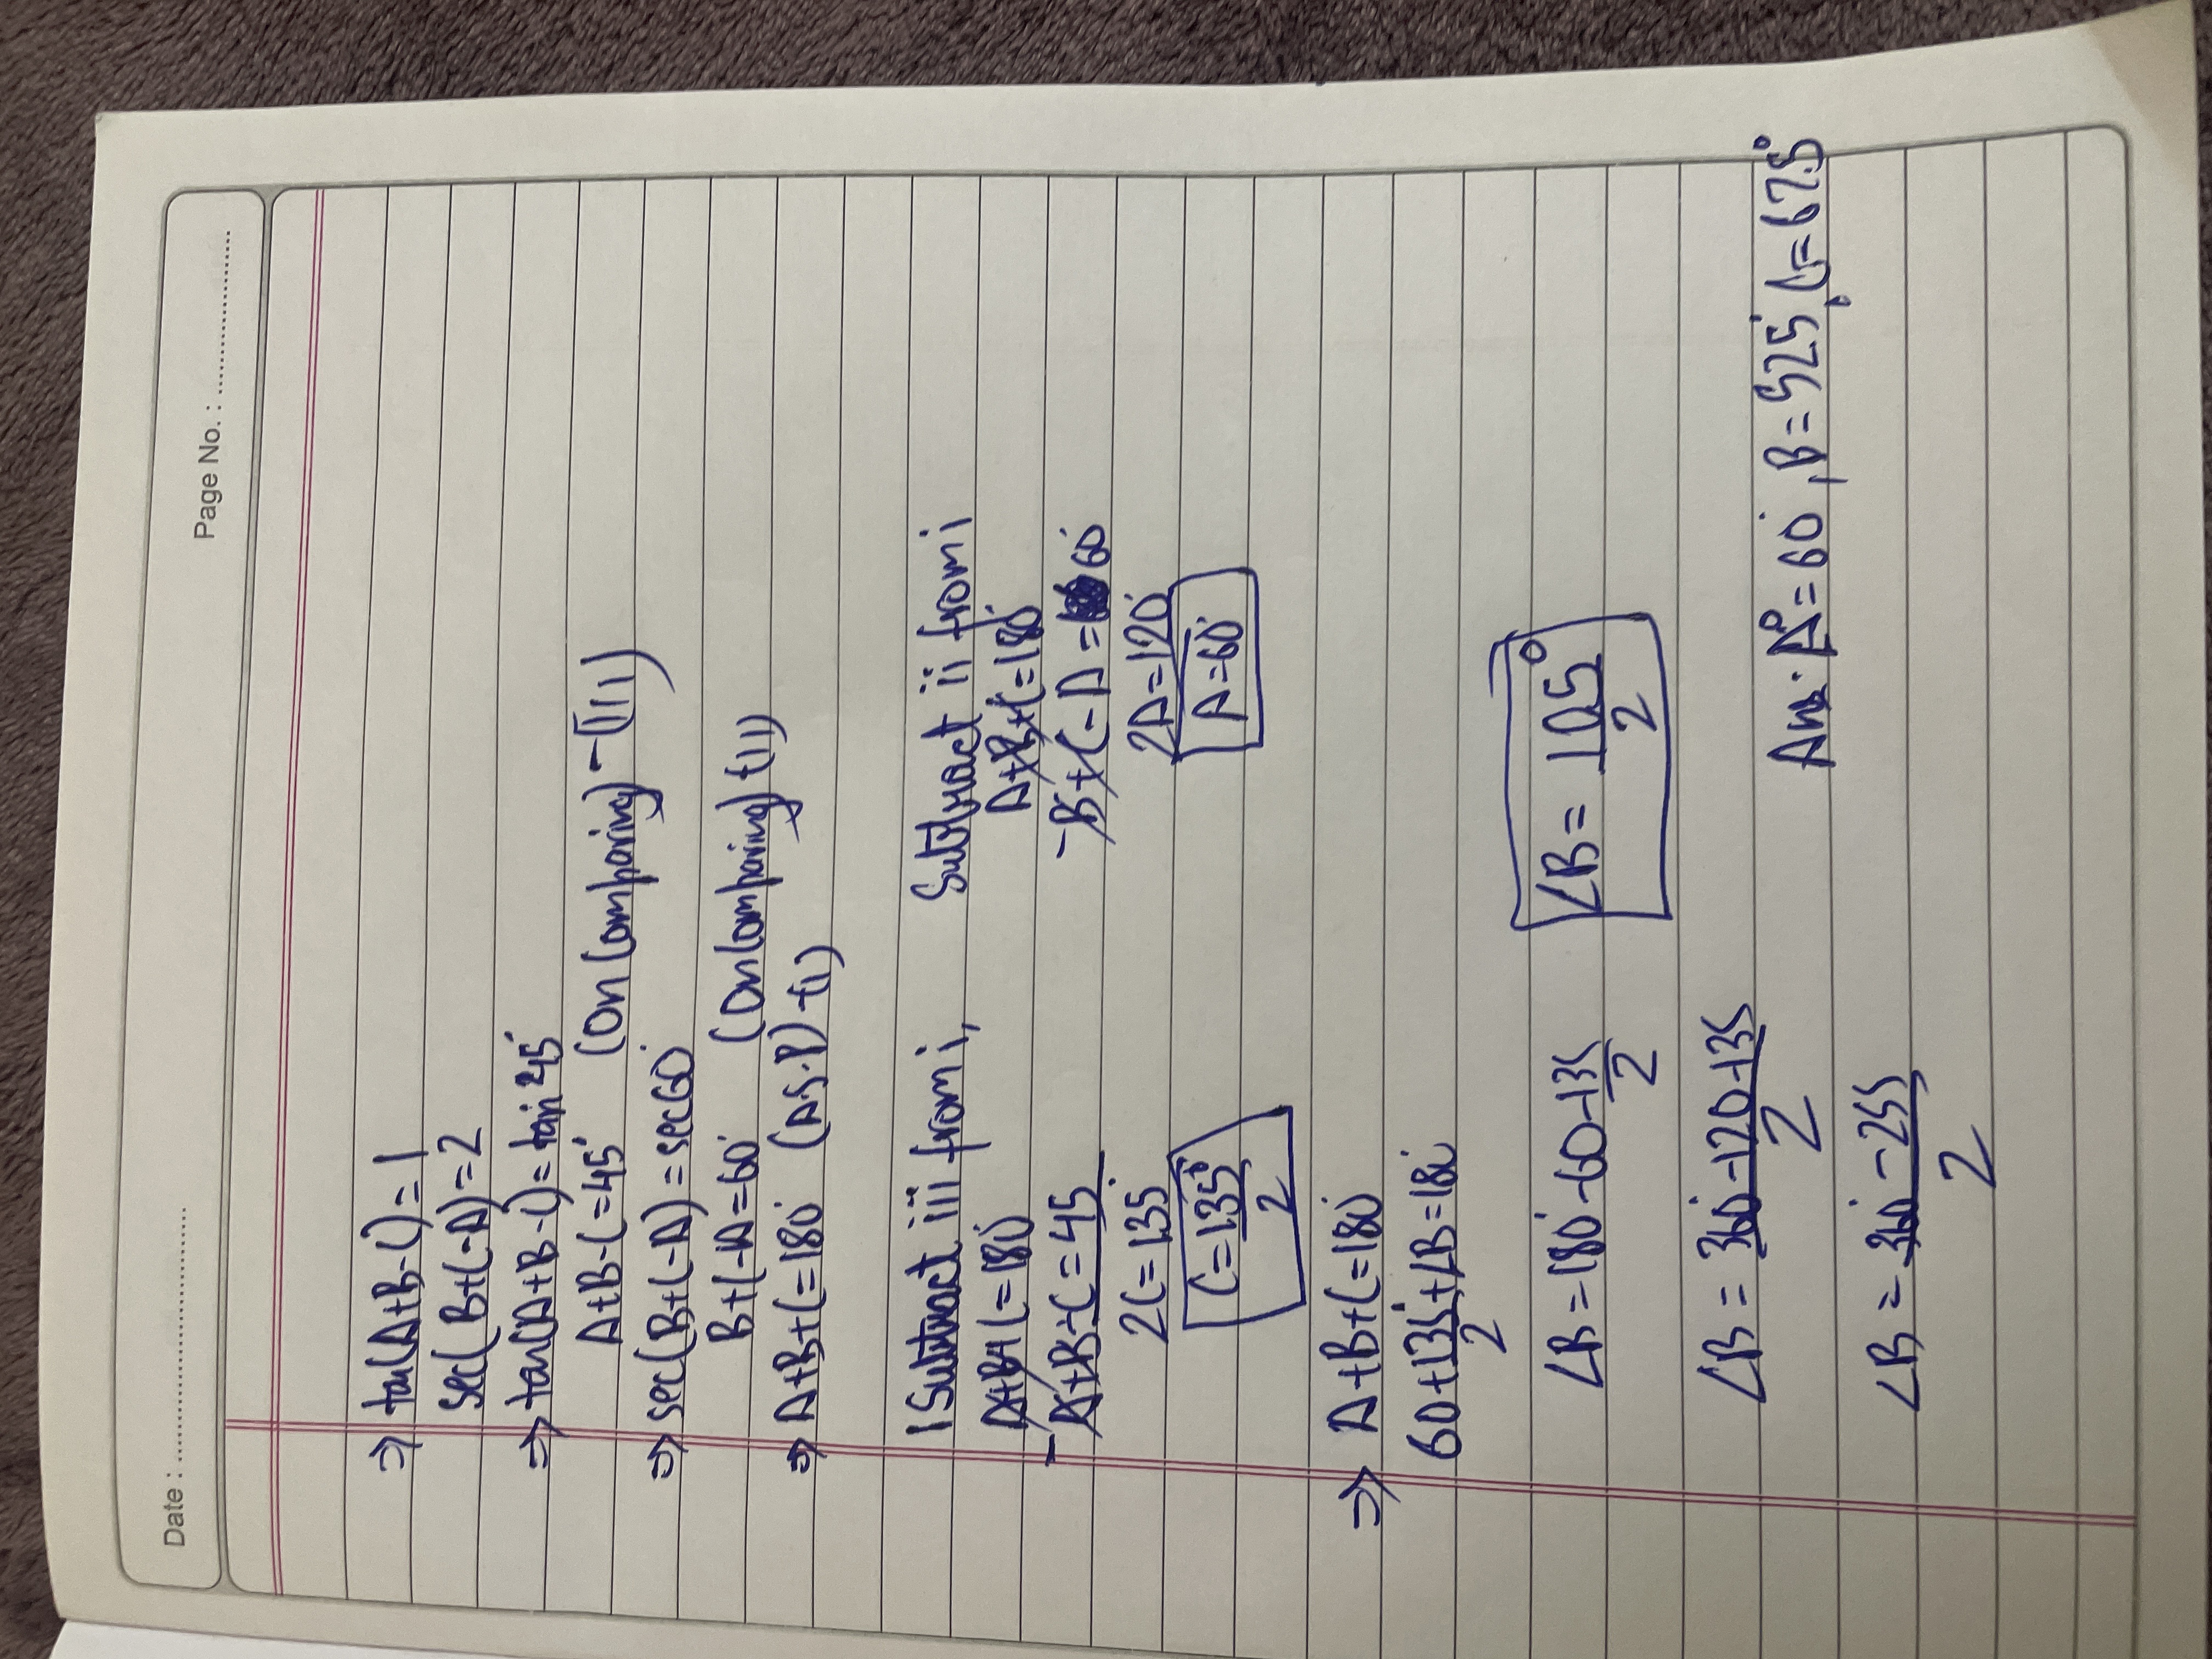 Date : ............ Page No. : ............
⇒ tan(A+B-C)=1
sec(B+C-A)=2
⇒ tan(A+B-C)=tan 45°
A+B-C=45° (On Comparing) -(iii)
⇒ sec(B+C-A)=sec60°
B+C-A=60° (On Comparing) -(ii)
⇒ A+B+C=180° (A.S.P) -(i)
Subtract iii from i,
A+B+C=180°
- A+B-C=45
2C=135°
C=135°/2
Subtract ii from i
A+B+C=180°
- B+C-A=60°
2A=120°
A=60°
⇒ A+B+C=180°
60+135°/2+∠B=180°
∠B=180°-60-135/2
∠B = 360°-120-135/2
∠B = 360°-255/2
∠B = 105°/2
Ans. A°=60°, B=52.5°, C=67.5°